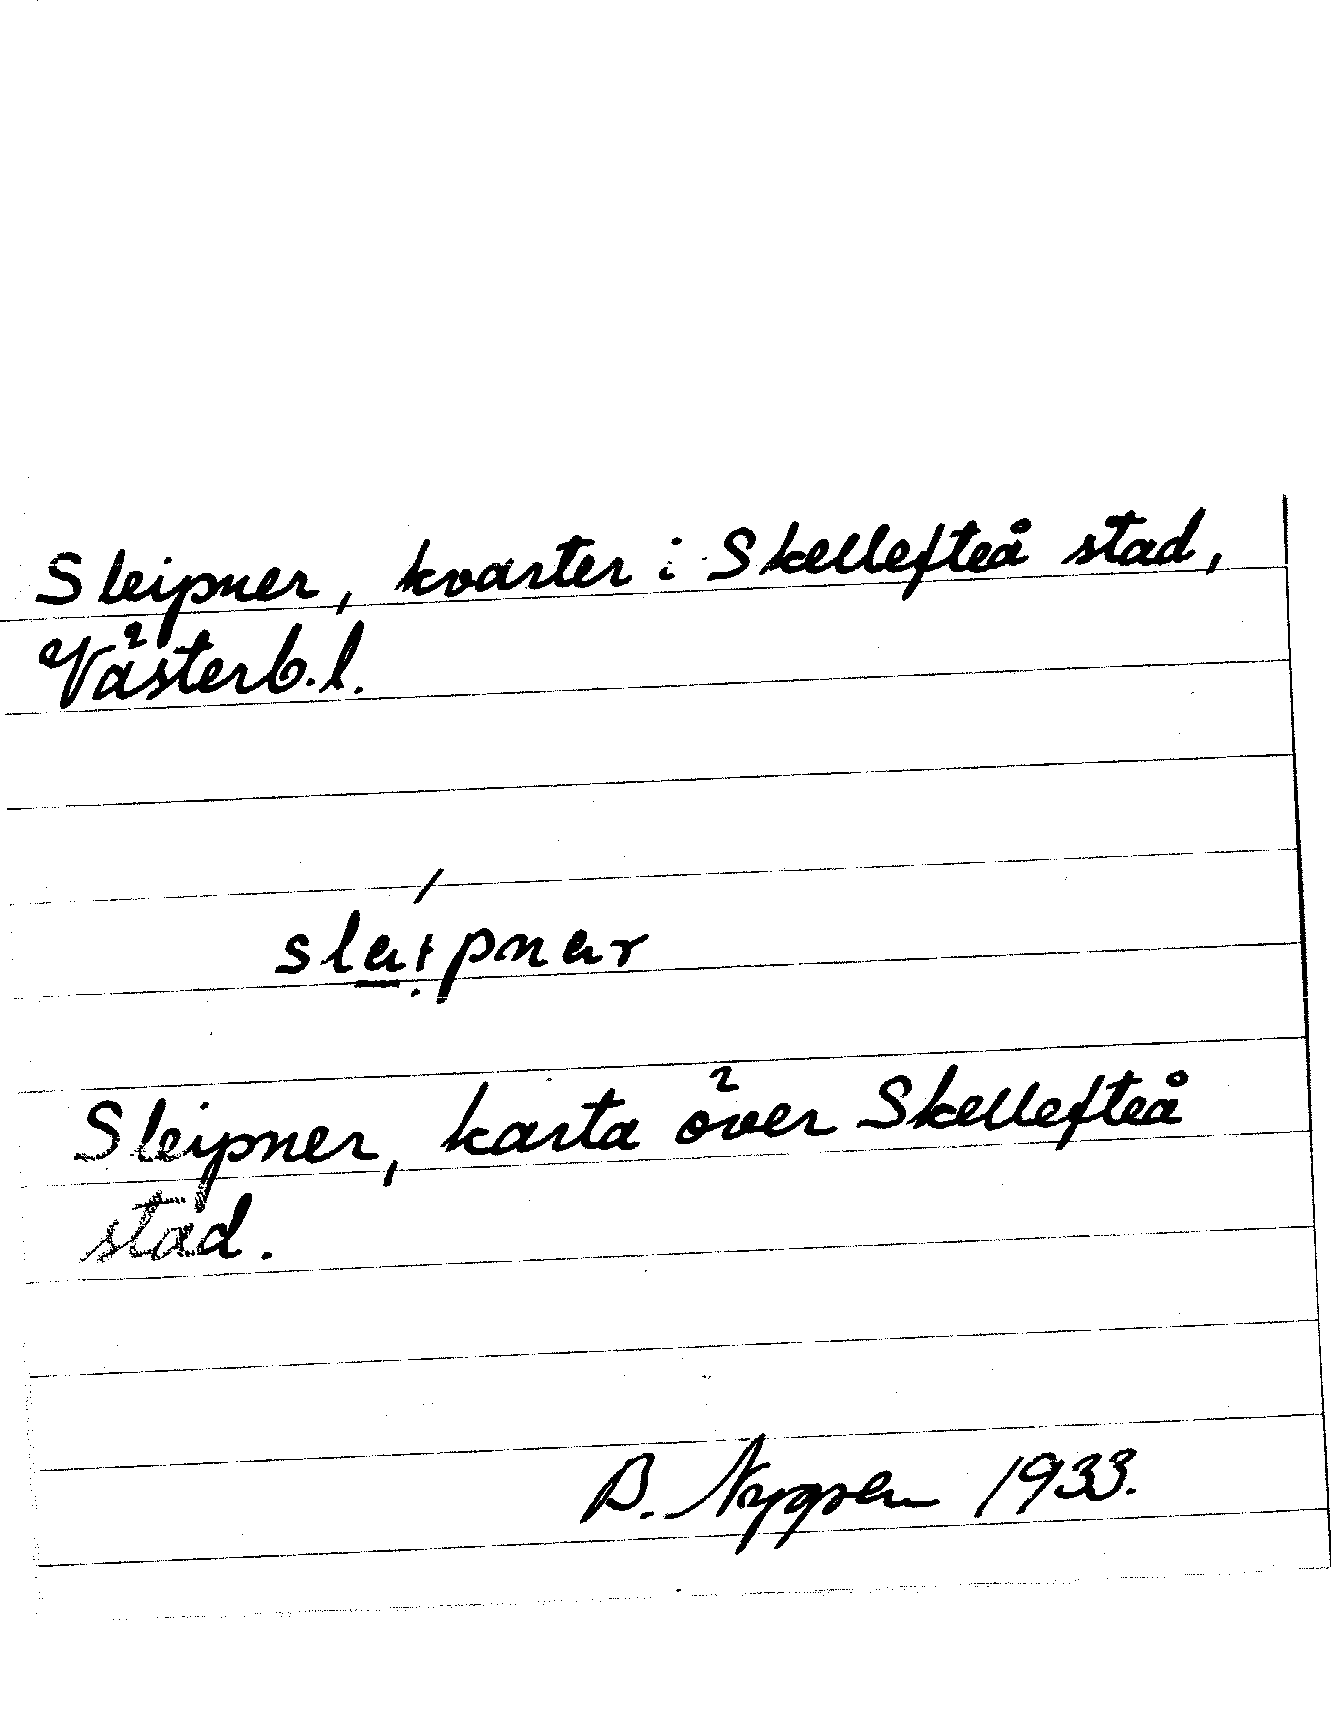 Sleipner, kvarter i Skellefteå stad,
Västerb.l.
Sleipner, karta över Skellefteå
stad.
B. Nygren 1933.